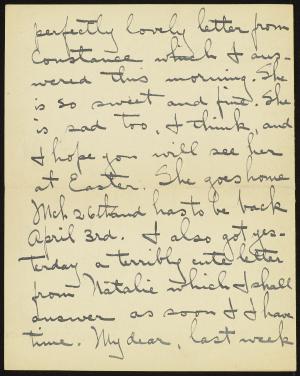 perfectly lovely letter from
Constance which I ans-
wered this morning. She
is so sweet and fine. She
is sad too, I think, and
I hope you will see her
at Easter. She goes home
Mch 26th and has to be back
April 3rd. I also got yes-
terday a terribly cute letter
from Natalie which I shall
answer as soon I I have
time. My dear, last week